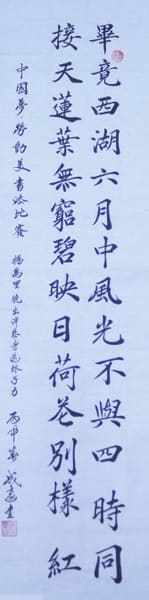 畢竟西湖六月中風光不與四時同
接天蓮葉無窮碧映日荷花別樣紅
中國夢勞動美書法比賽 楊萬里曉出淨慈寺送林子方 丙申